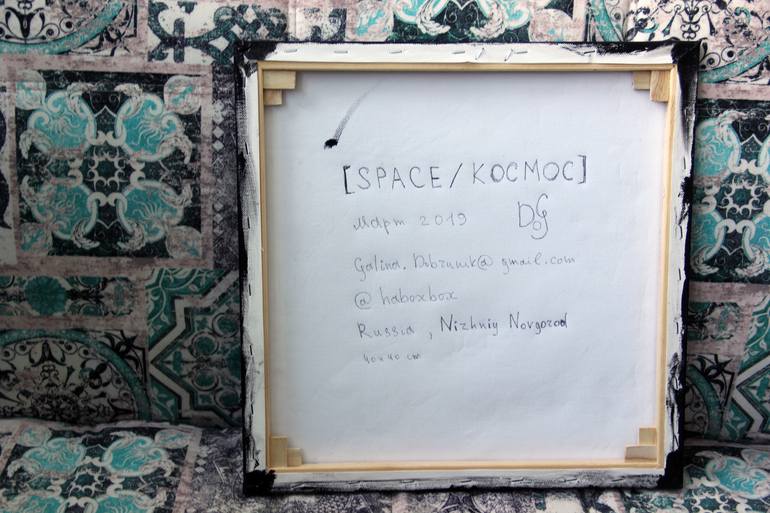 [SPACE/КОСМОС]
март 2019 DG
Galina.Dobrunik@gmail.com
@haboxbox
Russia, Nizhniy Novgorod
40x40 cm